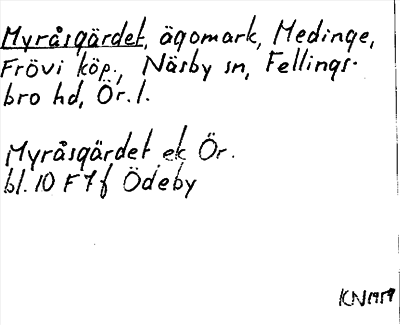 Myråsgärdet, ägomark, Medinge,
Frövi köp., Näsby sn, Fellings-
bro hd, Ör.l.
Myråsgärdet ek Ör.
bl. 10 F 7 f Ödeby
KN 1959